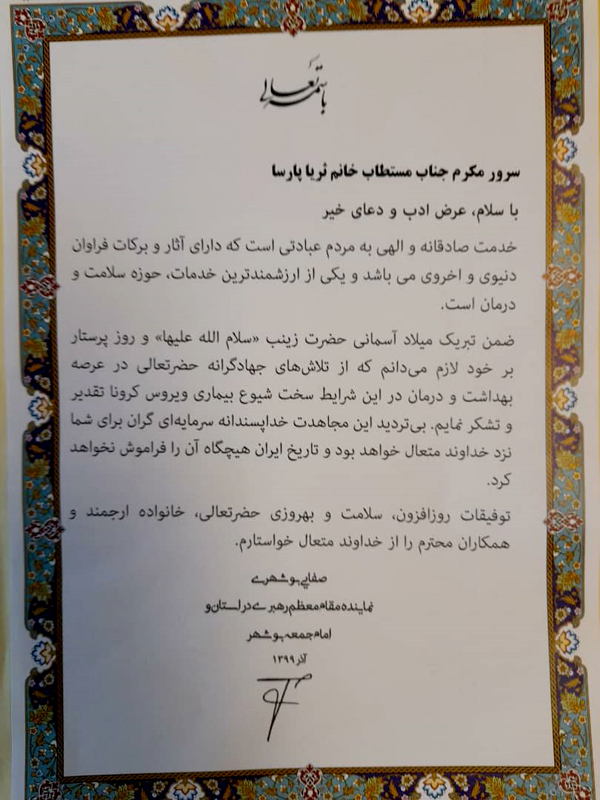 باسمه تعالی
سرور مکرم جناب مستطاب خانم ثریا پارسا
با سلام، عرض ادب و دعای خیر
خدمت صادقانه و الهی به مردم عبادتی است که دارای آثار و برکات فراوان
دنیوی و اخروی می باشد و یکی از ارزشمندترین خدمات، حوزه سلامت و
درمان است.
ضمن تبریک میلاد آسمانی حضرت زینب «سلام الله علیها» و روز پرستار
بر خود لازم می‌دانم که از تلاش‌های جهادگرانه حضرتعالی در عرصه
بهداشت و درمان در این شرایط سخت شیوع بیماری ویروس کرونا تقدیر
و تشکر نمایم. بی‌تردید این مجاهدت خداپسندانه سرمایه‌ای گران برای شما
نزد خداوند متعال خواهد بود و تاریخ ایران هیچگاه آن را فراموش نخواهد
کرد.
توفیقات روزافزون، سلامت و بهروزی حضرتعالی، خانواده ارجمند و
همکاران محترم را از خداوند متعال خواستارم.
صفایی بوشهری
نماینده مقام معظم رهبری در استان و
امام جمعه بوشهر
آذر ۱۳۹۹